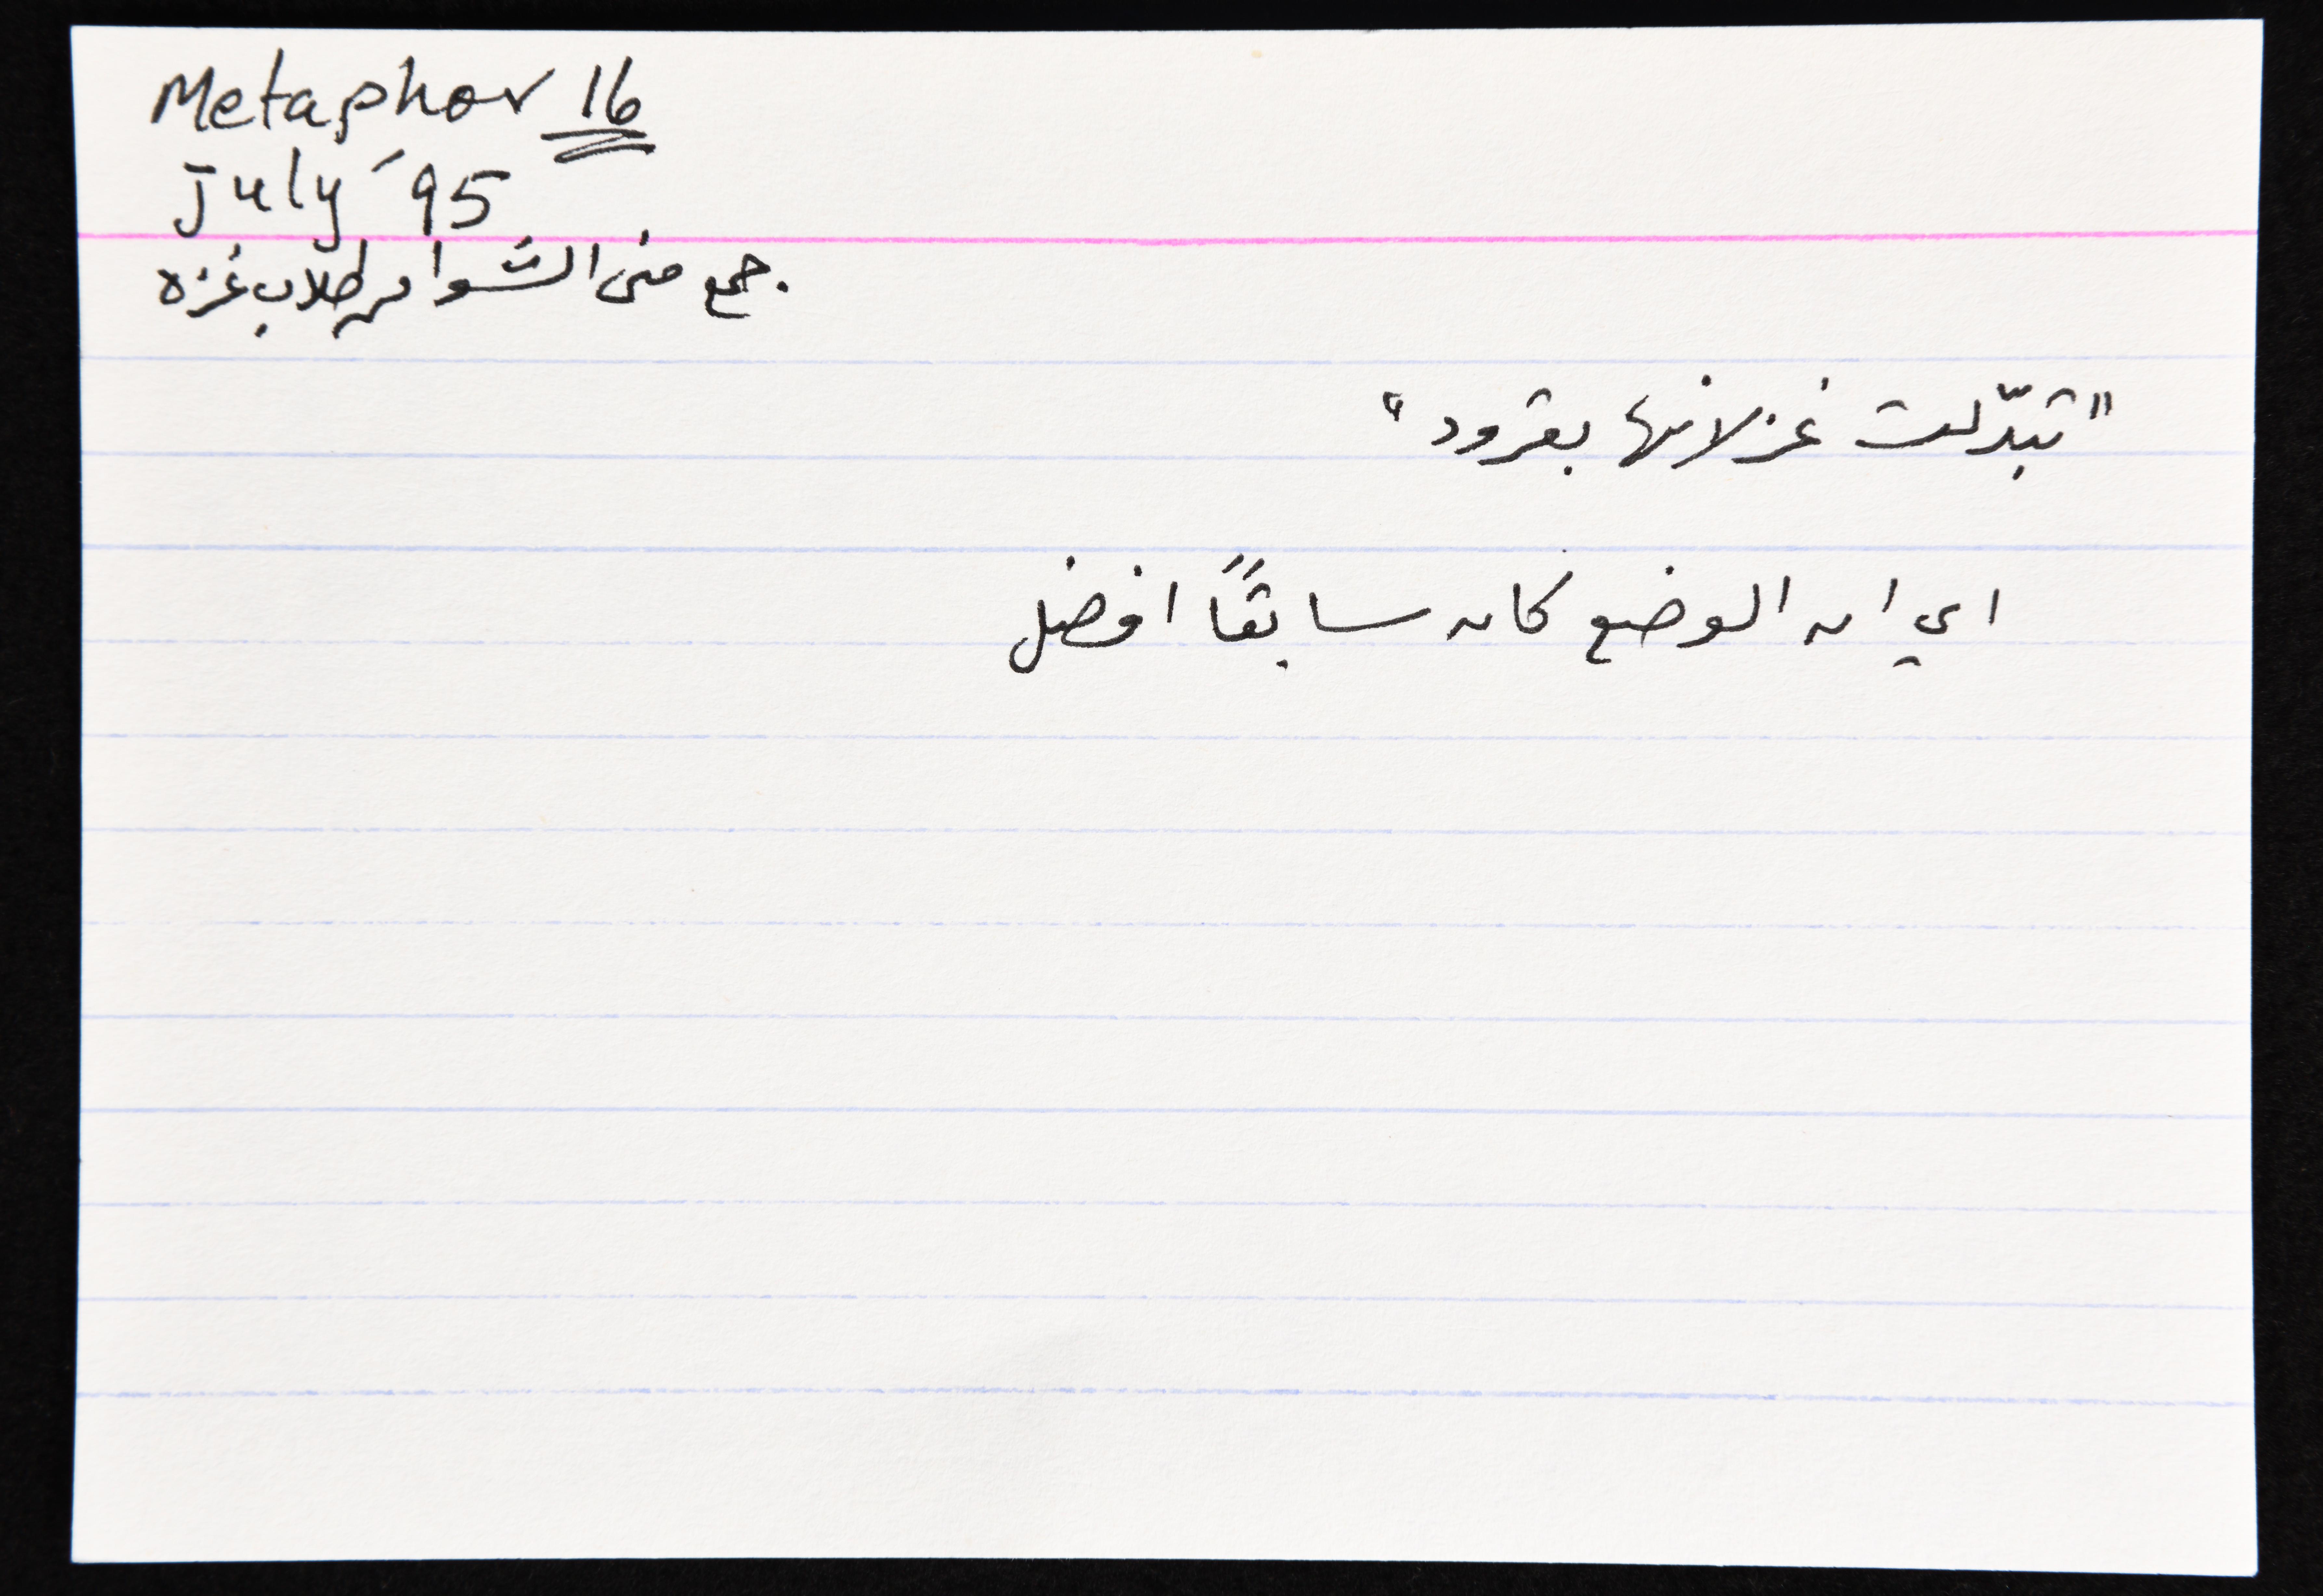 Metaphor 16
July '95
جمع منى الشوا من طلاب غزه
"تبدّلت غزلانها بقرود"
اي ان الوضع كان سابقاً افضل